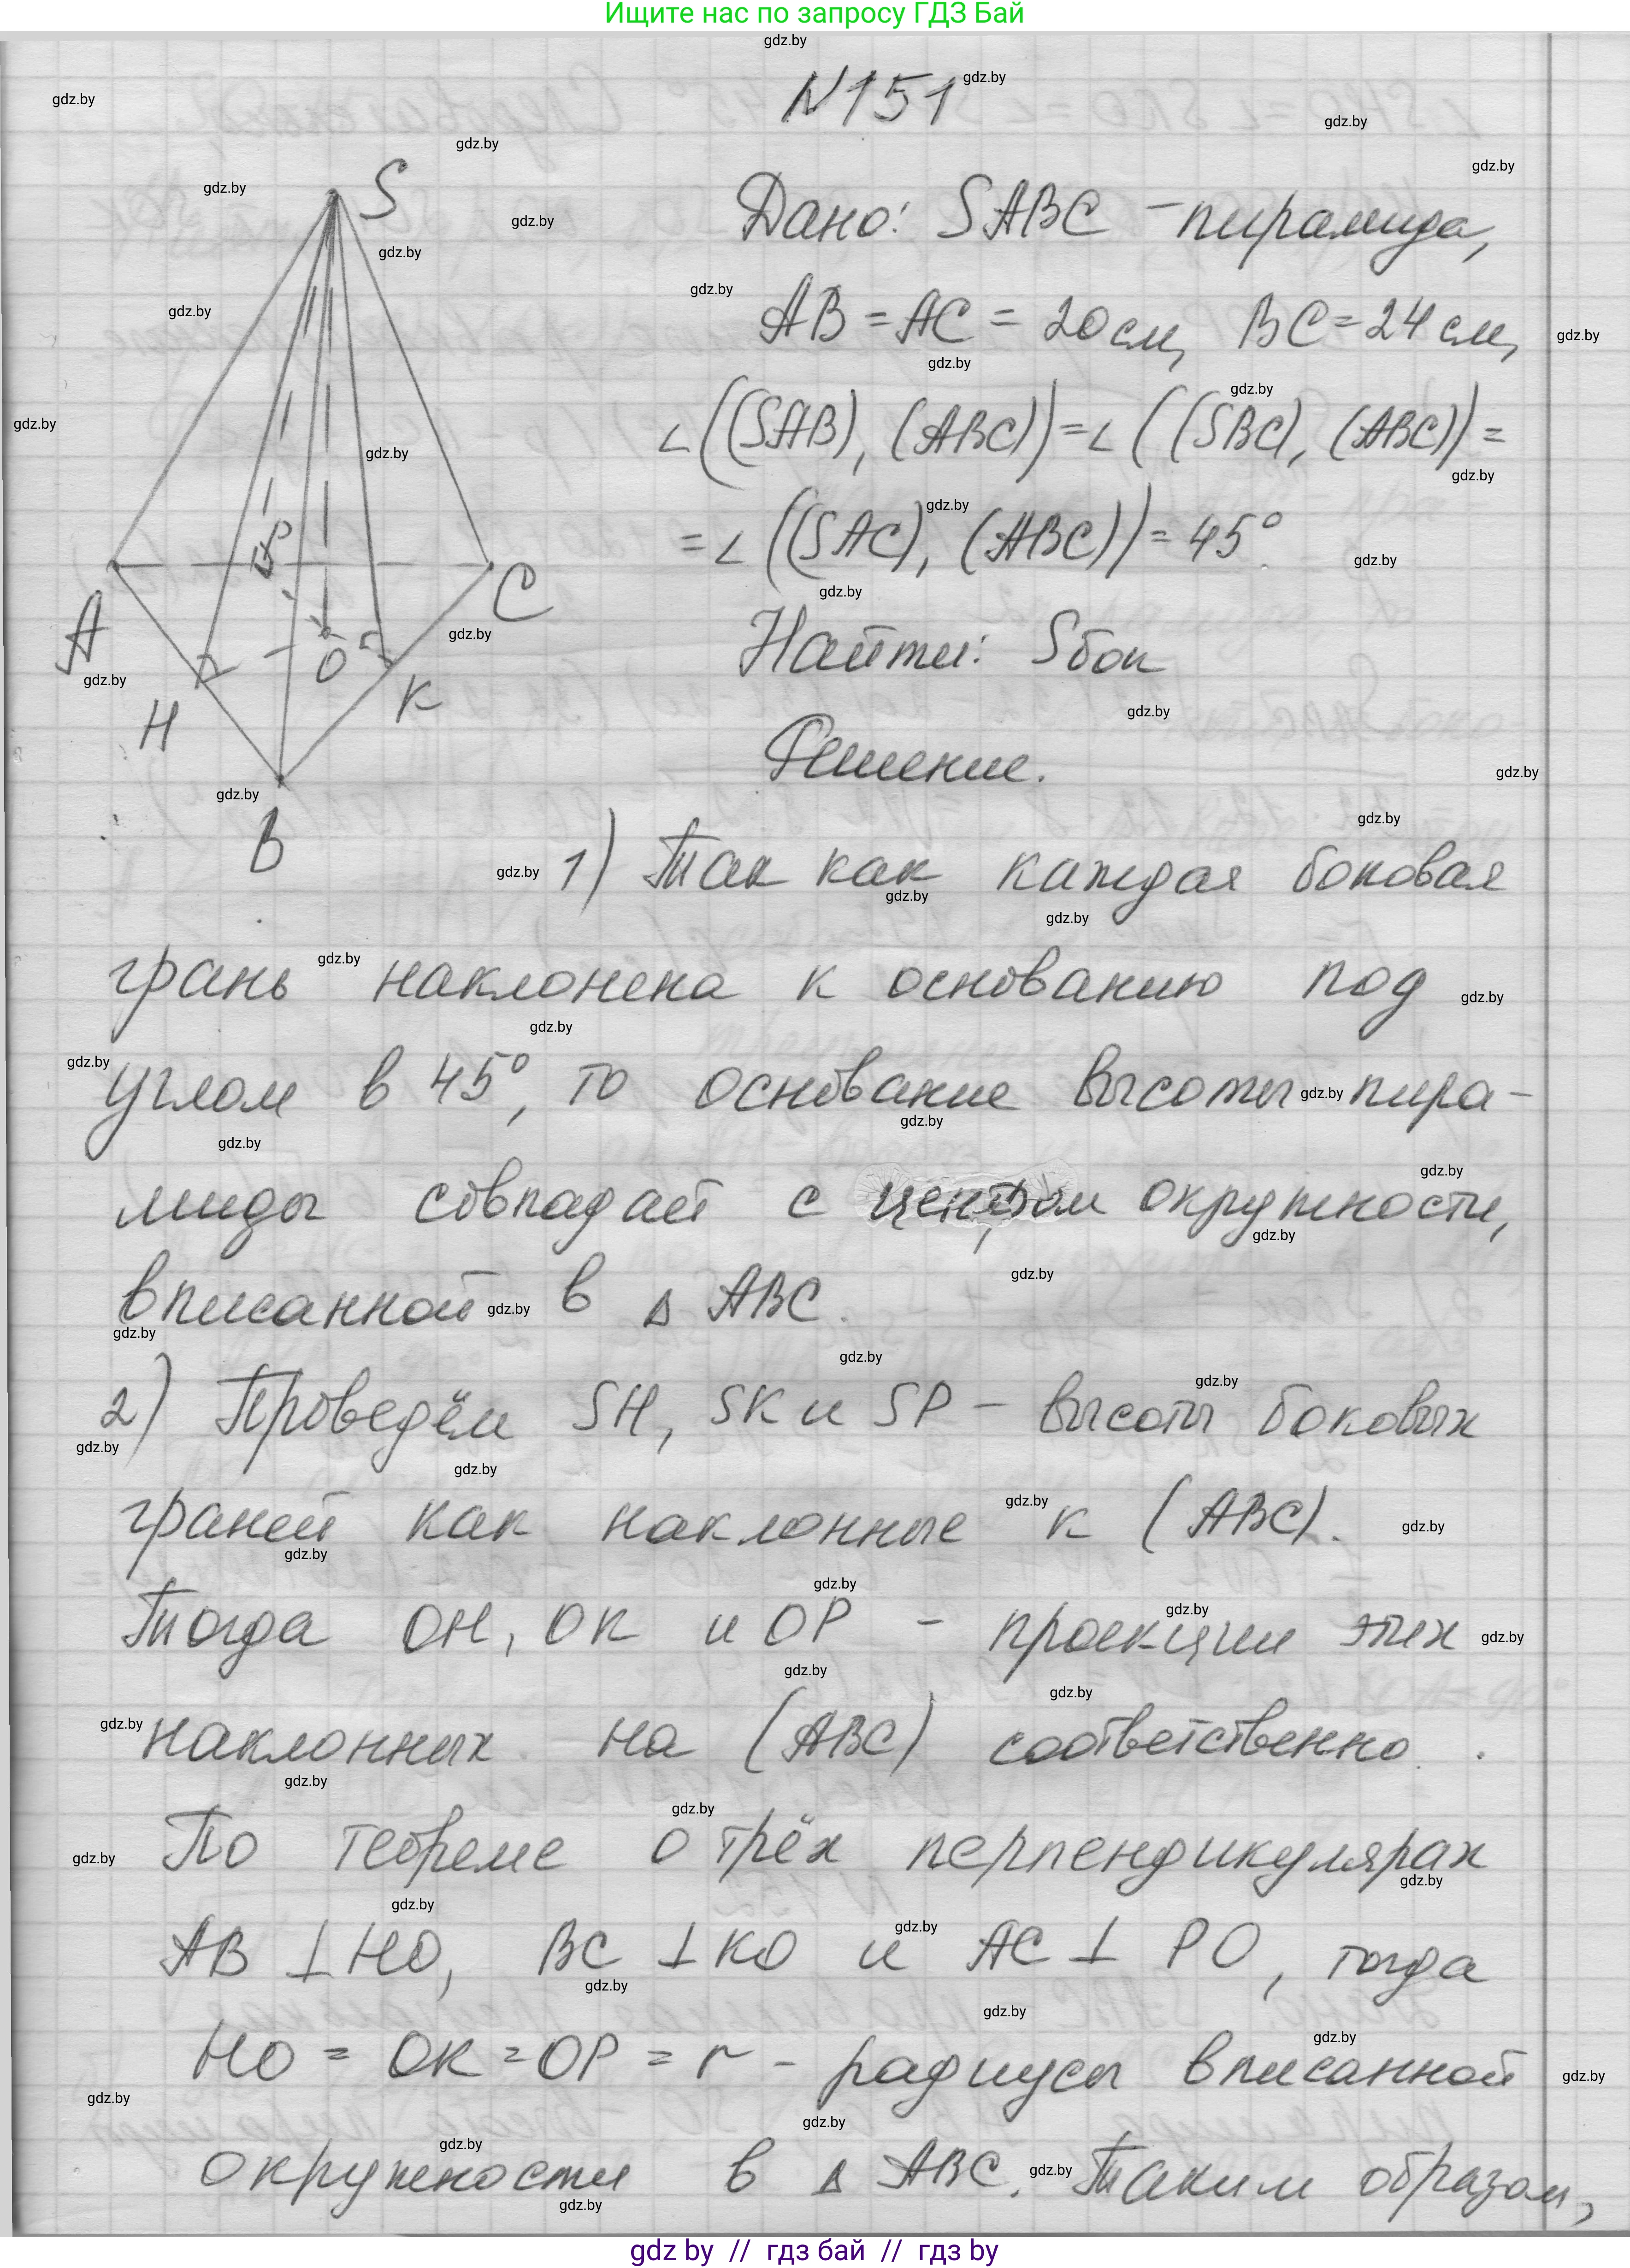 Ищите нас по запросу ГДЗ Бай
N151
Дано: SABC - пирамида,
AB = AC = 20 см, BC = 24 см,
∠((SAB), (ABC)) = ∠((SBC), (ABC)) =
= ∠((SAC), (ABC)) = 45°
Найти: Sбок
Решение.
S
A
C
P
O
H
K
B
1) Так как каждая боковая
грань наклонена к основанию под
углом в 45°, то основание высоты пира-
миды совпадает с центром окружности,
вписанной в △ ABC.
2) Проведём SH, SK и SP - высоты боковых
граней как наклонные к (ABC).
Тогда OH, OK и OP - проекции этих
наклонных на (ABC) соответственно.
По теореме о трёх перпендикулярах
AB ⊥ HO, BC ⊥ KO и AC ⊥ PO, тогда
HO = OK = OP = r - радиусы вписанной
окружности в △ ABC. Таким образом,
gdz by // гдз бай // гдз by